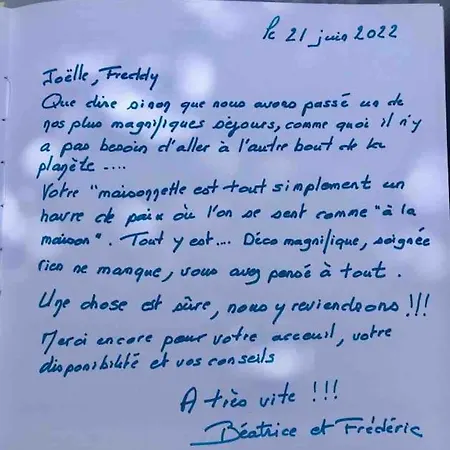 le 21 juin 2022
Joëlle, Freddy
Que dire sinon que nous avons passé un de
nos plus magnifiques séjours, comme quoi il n'y
a pas besoin d'aller à l'autre bout de la
planète ....
Votre "maisonnette est tout simplement un
havre de paix où l'on se sent comme "à la
maison". Tout y est.... Déco magnifique, soignée
rien ne manque, vous avez pensé à tout.
Une chose est sûre, nous y reviendrons !!!
Merci encore pour votre accueil, votre
disponibilité et vos conseils
A très vite !!!
Béatrice et Frédéric